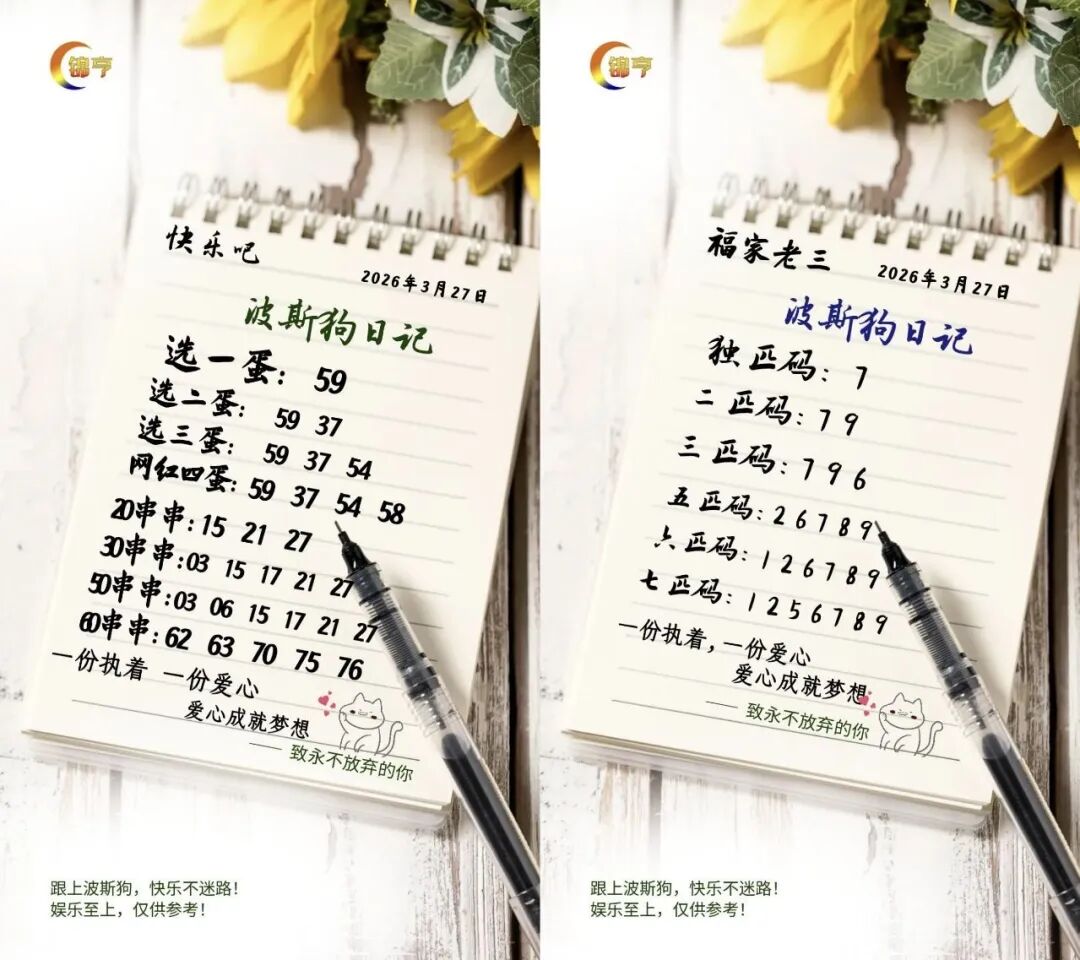 锦亨
快乐吧
2026年3月27日
波斯狗日记
选一蛋: 59
选二蛋: 59 37
选三蛋: 59 37 54
网红四蛋: 59 37 54 58
20串串: 15 21 27
30串串: 03 15 17 21 27
50串串: 03 06 15 17 21 27
60串串: 62 63 70 75 76
一份执着 一份爱心
爱心成就梦想
—— 致永不放弃的你
跟上波斯狗，快乐不迷路！
娱乐至上，仅供参考！
锦亨
福家老三
2026年3月27日
波斯狗日记
独匹码: 7
二匹码: 7 9
三匹码: 7 9 6
五匹码: 2 6 7 8 9
六匹码: 1 2 6 7 8 9
七匹码: 1 2 5 6 7 8 9
一份执着，一份爱心
爱心成就梦想
—— 致永不放弃的你
跟上波斯狗，快乐不迷路！
娱乐至上，仅供参考！